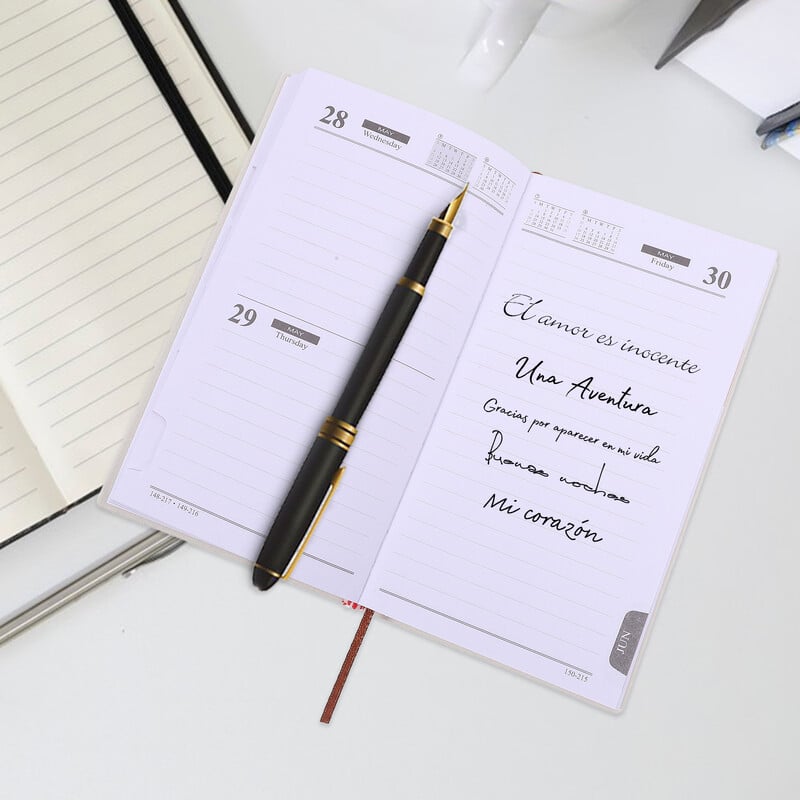 28
MAY
Wednesday
29
MAY
Thursday
148-217 • 149-216
MAY
Friday
30
El amor es inocente
Una Aventura
Gracias por aparecer en mi vida
Buenas noches
Mi corazón
JUN
150-215